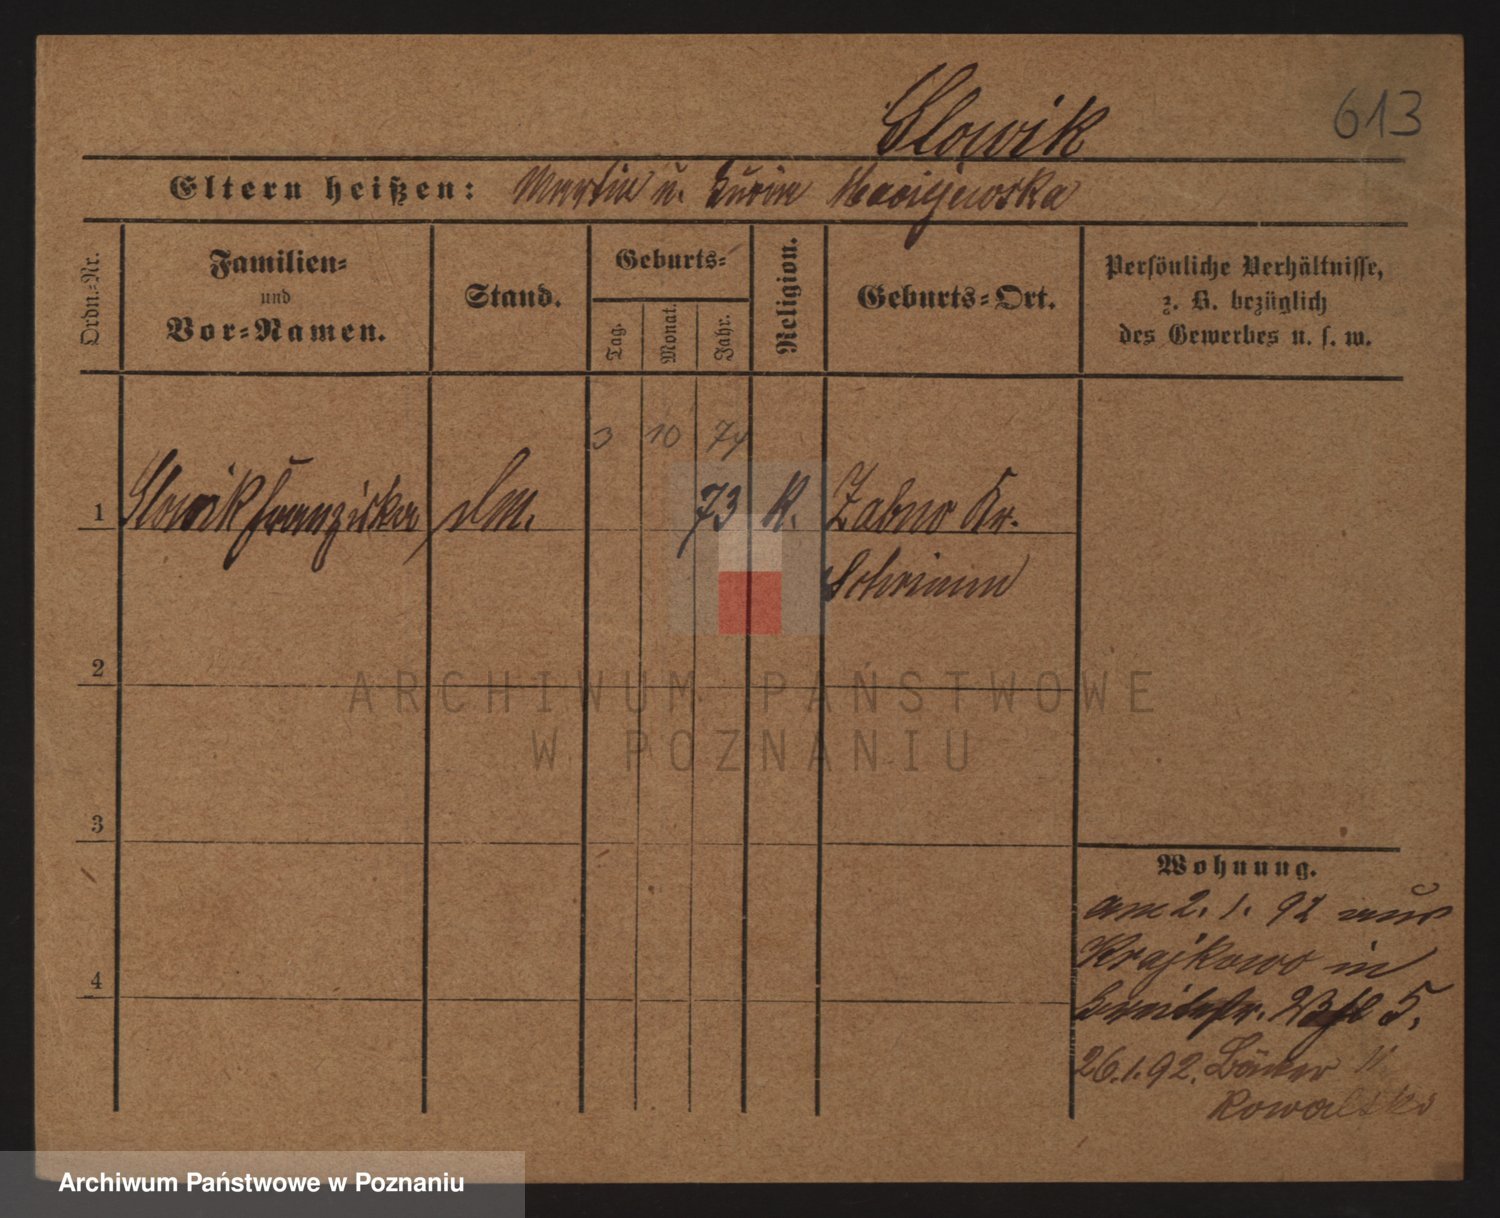 613
Slowik
Eltern heißen: Martin u. Maciejewska
Ordn.-Nr.
Familien-
und
Vor-Namen.
Stand.
Geburts-
Tag.
Monat.
Jahr.
Religion.
Geburts-Ort.
Persönliche Verhältnisse,
z. B. bezüglich
des Gewerbes u. s. w.
3 10 74
1 Slowik Franziska 73 K. Zabno Kr.
Schrimm
2
ARCHIWUM PAŃSTWOWE
W POZNANIU
3
4
Wohnung.
am 2. 1. 92 aus
Krajkowo in
Breitestr. 5.
26.1.92. Bäcker
Kowalski
Archiwum Państwowe w Poznaniu